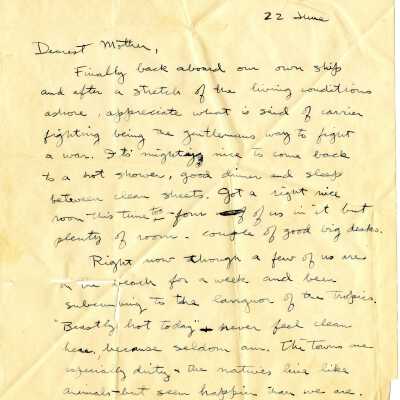 22 June
Dearest Mother,
Finally back aboard our own ship
and after a stretch of the living conditions
ashore, appreciate what is said of carrier
fighting being the gentlemans way to fight
a war. It's mighty nice to come back
to a hot shower, good dinner and sleep
between clean sheets. Got a right nice
room this time - four of us in it but
plenty of room - couple of good big desks.
Right now though a few of us are
on the beach for a week and been
subcumbing to the languor of the Tropics.
"Beastly hot today" + never feel clean
here, because seldom am. The towns are
especially dirty + the natives live like
animals - but seem happier than we are.